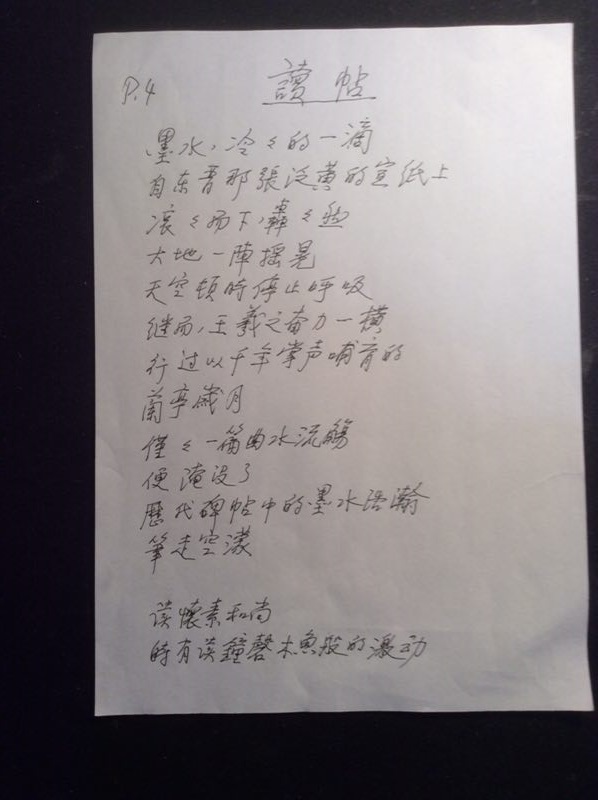 P.4
讀帖
墨水,冷々的一滴
自东晋那張泛黄的宣纸上
滚々而下,轟々然
大地一陣摇晃
天空頓時停止呼吸
继而,王羲之奋力一橫
行过以千年掌声哺育的
蘭亭歲月
僅々一篇曲水流觞
便淹没了
歷代碑帖中的墨水浩瀚
筆走空濛
读懷素和尚
時有读鐘磬木魚般的激动